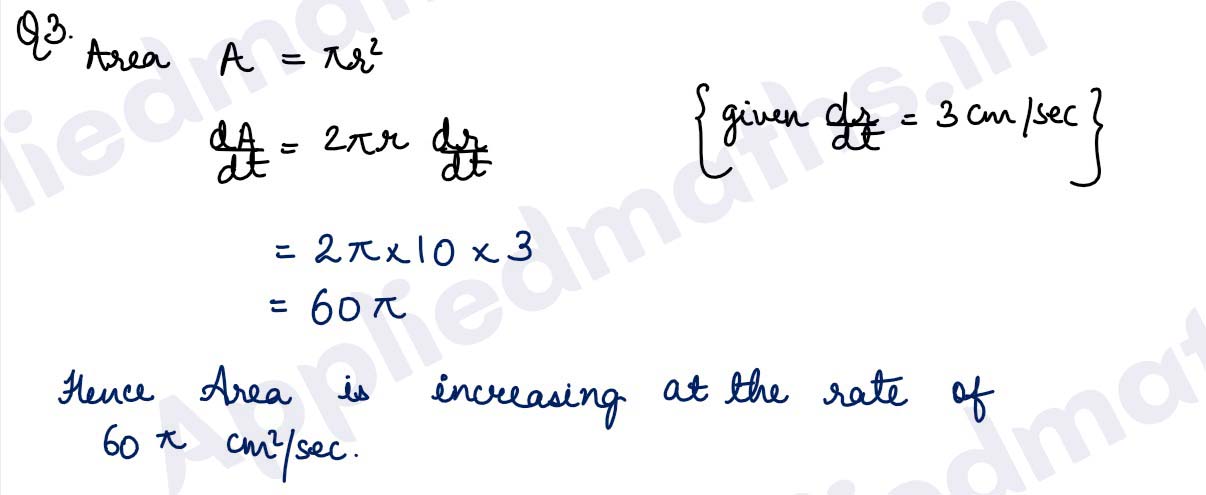 Q3.
Area A = πr²
dA/dt = 2πr dr/dt {given dr/dt = 3 cm/sec}
= 2π×10 × 3
= 60π
Hence Area is increasing at the rate of
60 π cm²/sec.
liedmaths.in
Appliedmaths.in
Appliedmat